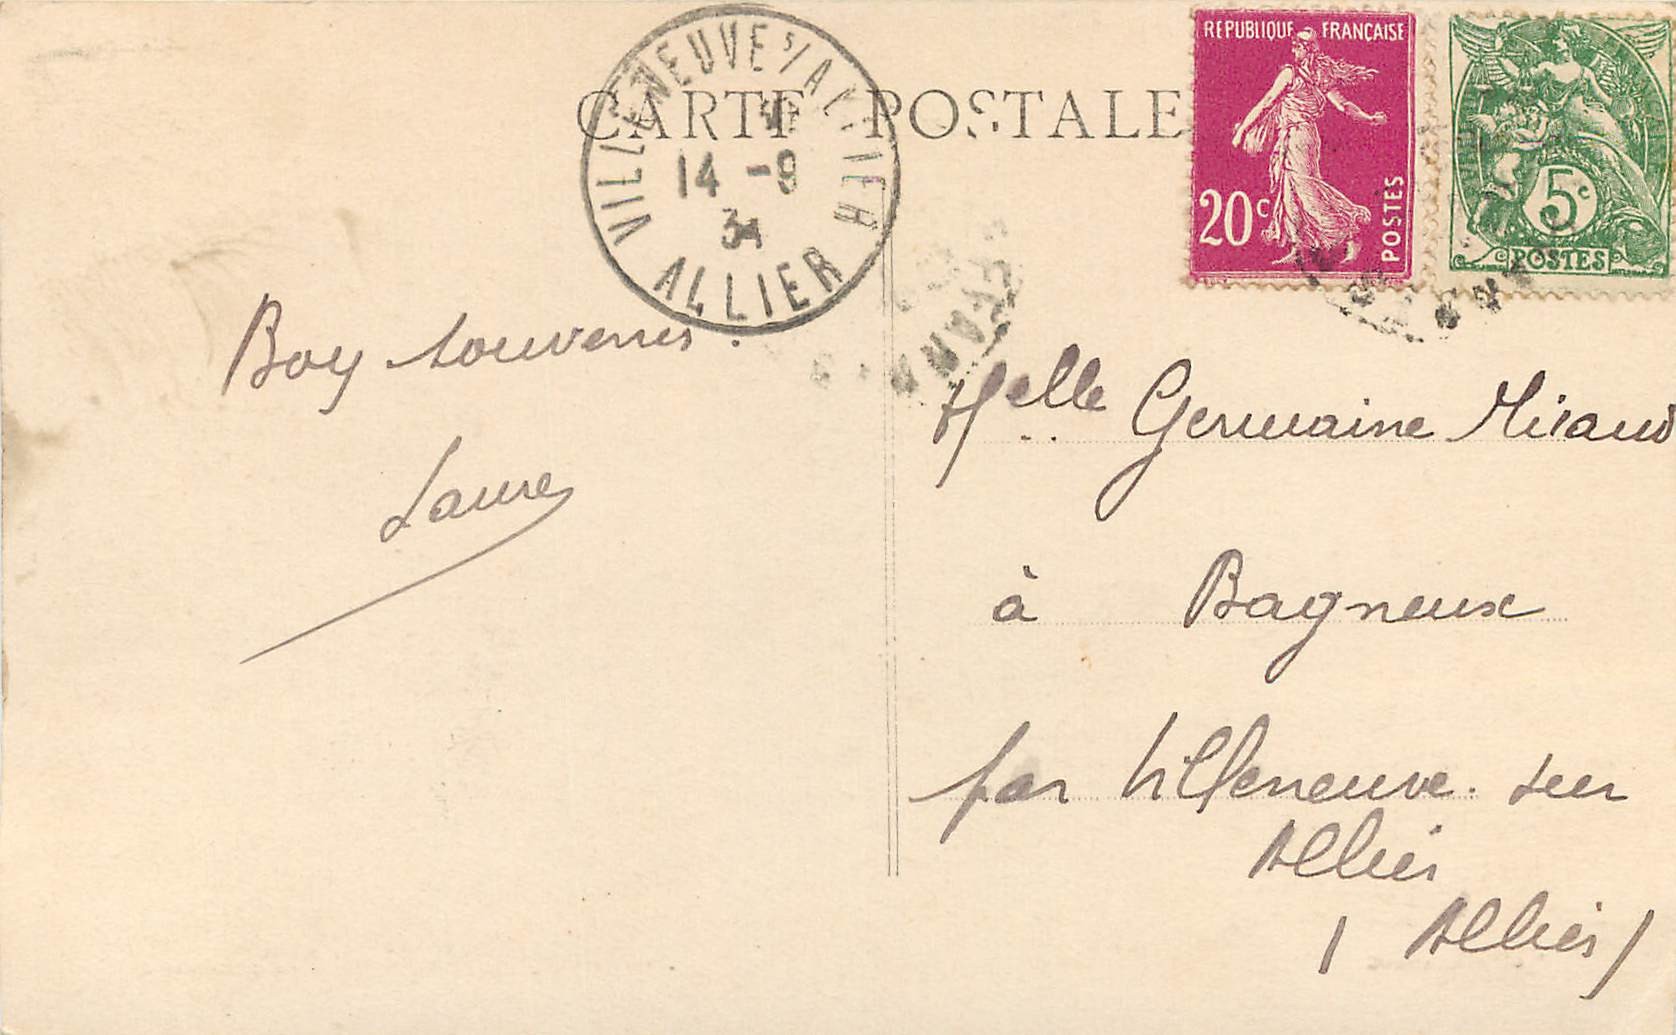 CARTE POSTALE
VILLENEUVE S/ ALLIER
14 -9
34
ALLIER
REPUBLIQUE FRANÇAISE
20c
POSTES
5c
POSTES
Bons souvenirs.
Laure
Melle Germaine Miraud
à Bagneux
par Villeneuve. sur
Allier
(Allier)